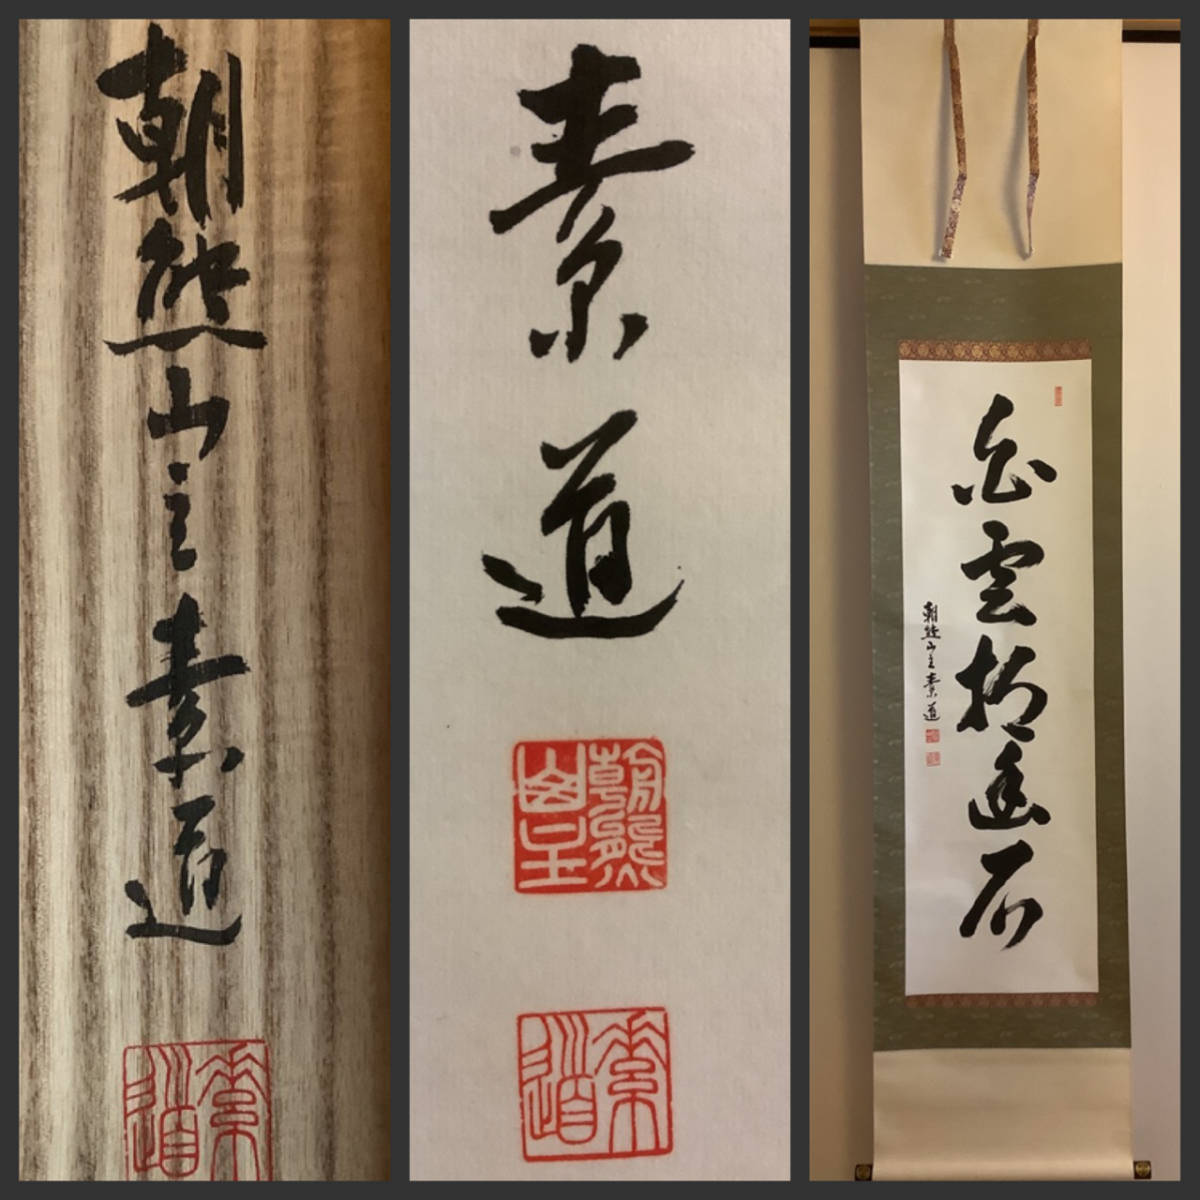 朝熊山主素道
素道
素道
素道
白雲抱幽石
朝熊山主素道